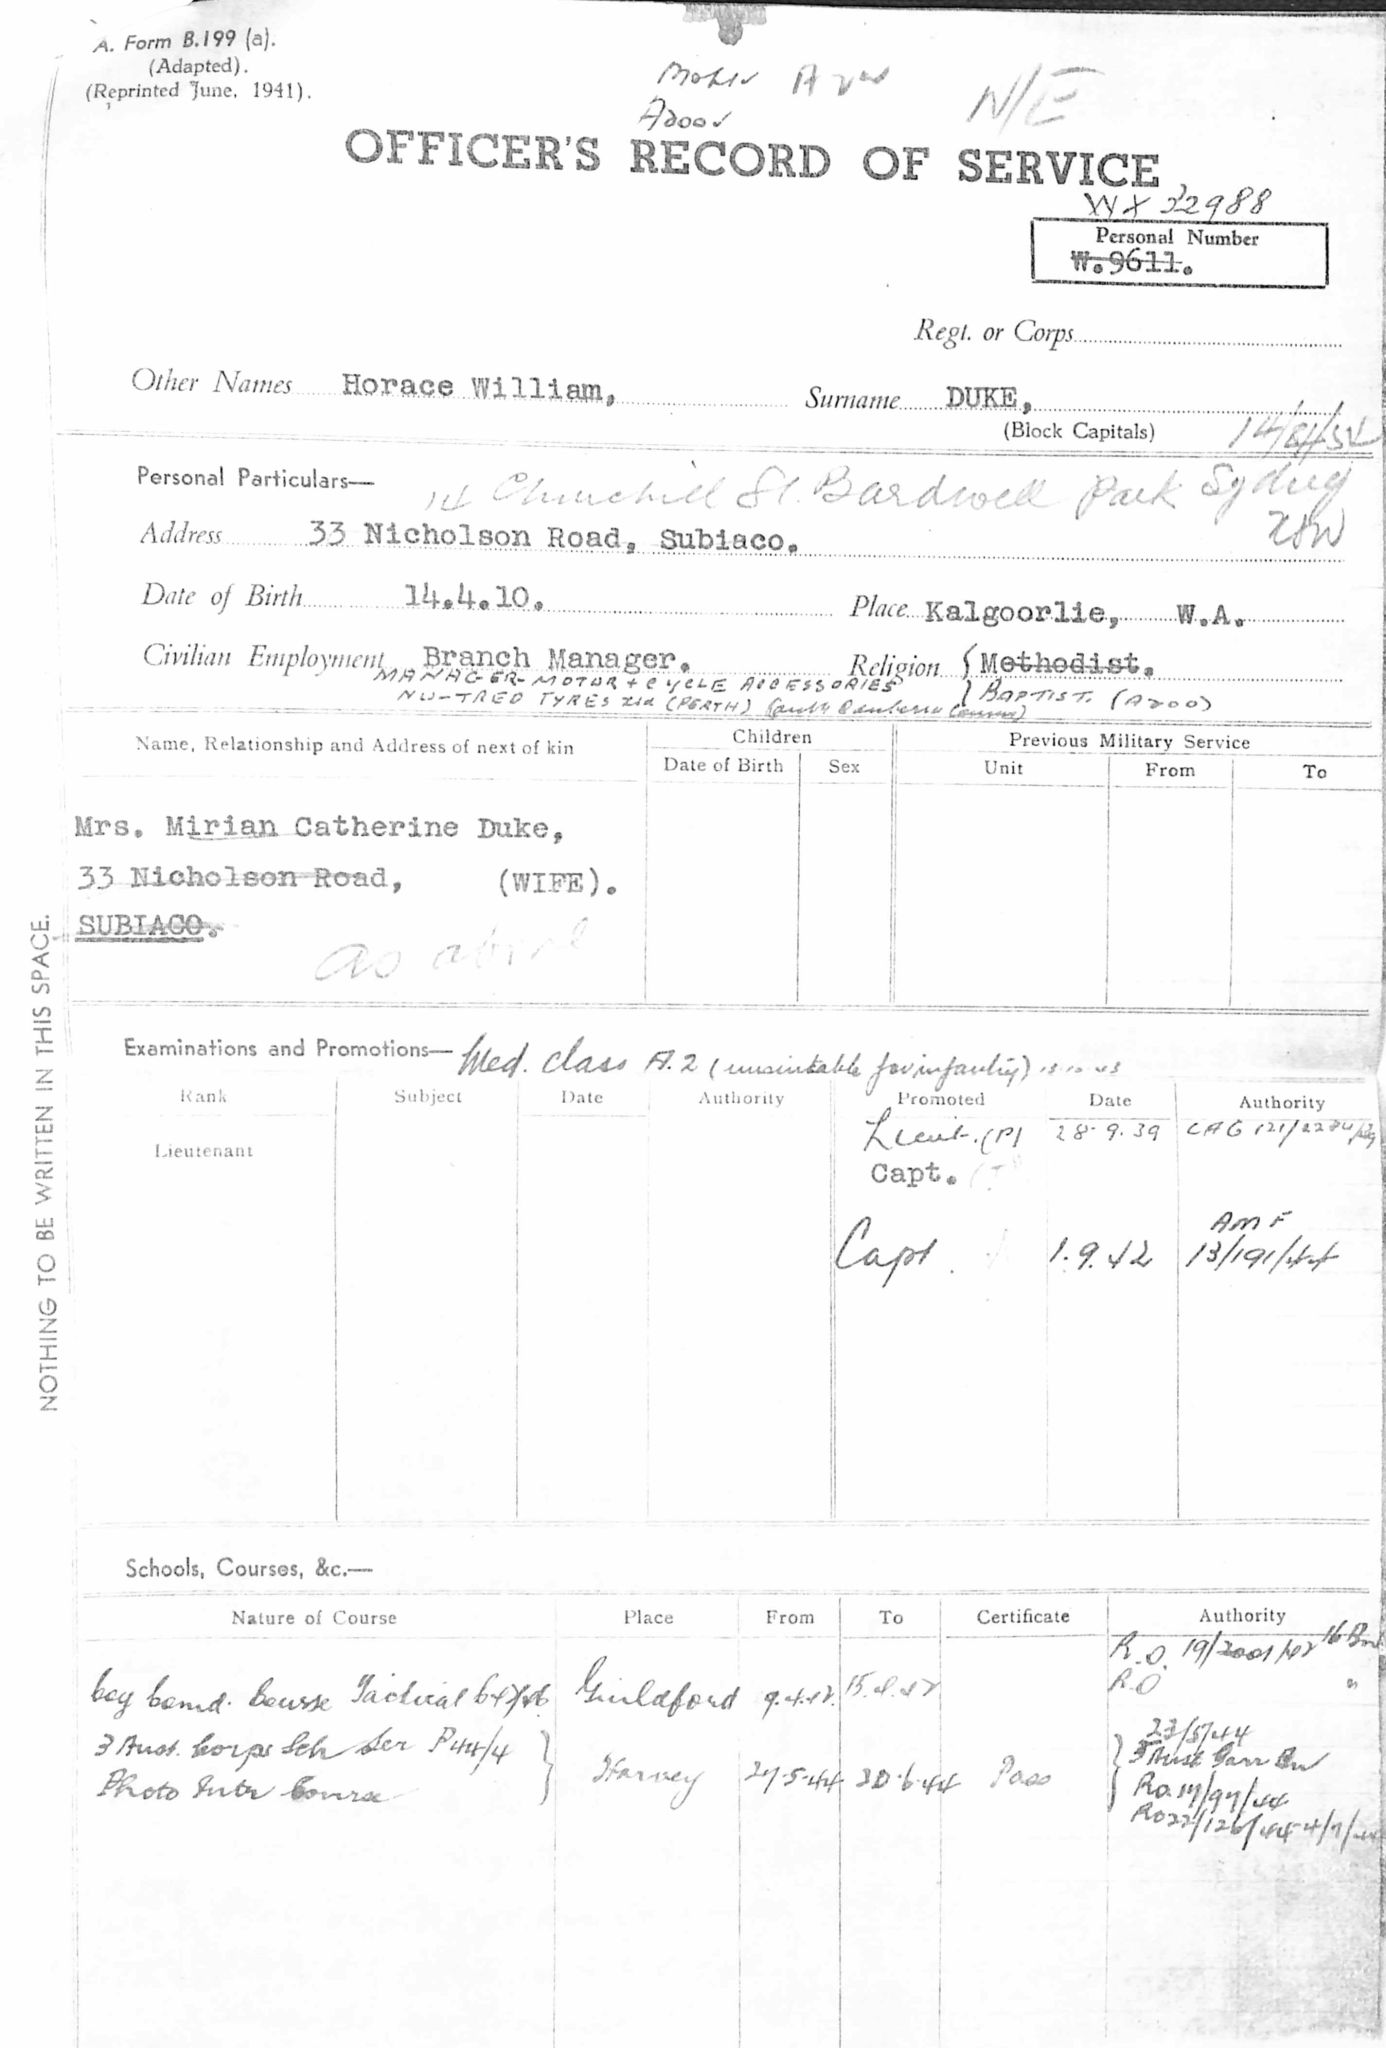 A. Form B.199 (a).
(Adapted).
(Reprinted June, 1941).
N/E
OFFICER'S RECORD OF SERVICE
WX 32988
Personal Number
W.9611.
Regt. or Corps
Other Names Horace William, Surname DUKE,
(Block Capitals)
Personal Particulars—
14 Churchill St. Bardwell Park Sydney
NSW
Address 33 Nicholson Road, Subiaco.
Date of Birth 14.4.10. Place Kalgoorlie, W.A.
Civilian Employment Branch Manager. Religion Methodist.
MANAGER-MOTOR + CYCLE ACCESSORIES
BAPTIST. (A200)
NU-TRED TYRES (PERTH)
Name, Relationship and Address of next of kin
Children
Date of Birth Sex
Previous Military Service
Unit From To
Mrs. Mirian Catherine Duke,
33 Nicholson Road, (WIFE).
SUBIACO.
as above
NOTHING TO BE WRITTEN IN THIS SPACE.
Examinations and Promotions— Med. class A.2 (unsuitable for infantry)
Rank Subject Date Authority Promoted Date Authority
Lieutenant
Lieut. (P) 28-9.39
Capt.
AMF
Capt 1.9.42 13/191/44
Schools, Courses, &c.—
Nature of Course Place From To Certificate Authority
R.O. 19/2001/42 16 Bn
Coy Comd. Course Tactical Guildford 9.4.42. 15.4.42 R.O "
3 Aust. Corps Sch Ser P44/4 23/5/44
Photo Intr Course Harvey 27-5-44 30-6-44 Pass 5 Aust Garr Bn
RO 17/97/44
RO 22/126/44 4/7/44